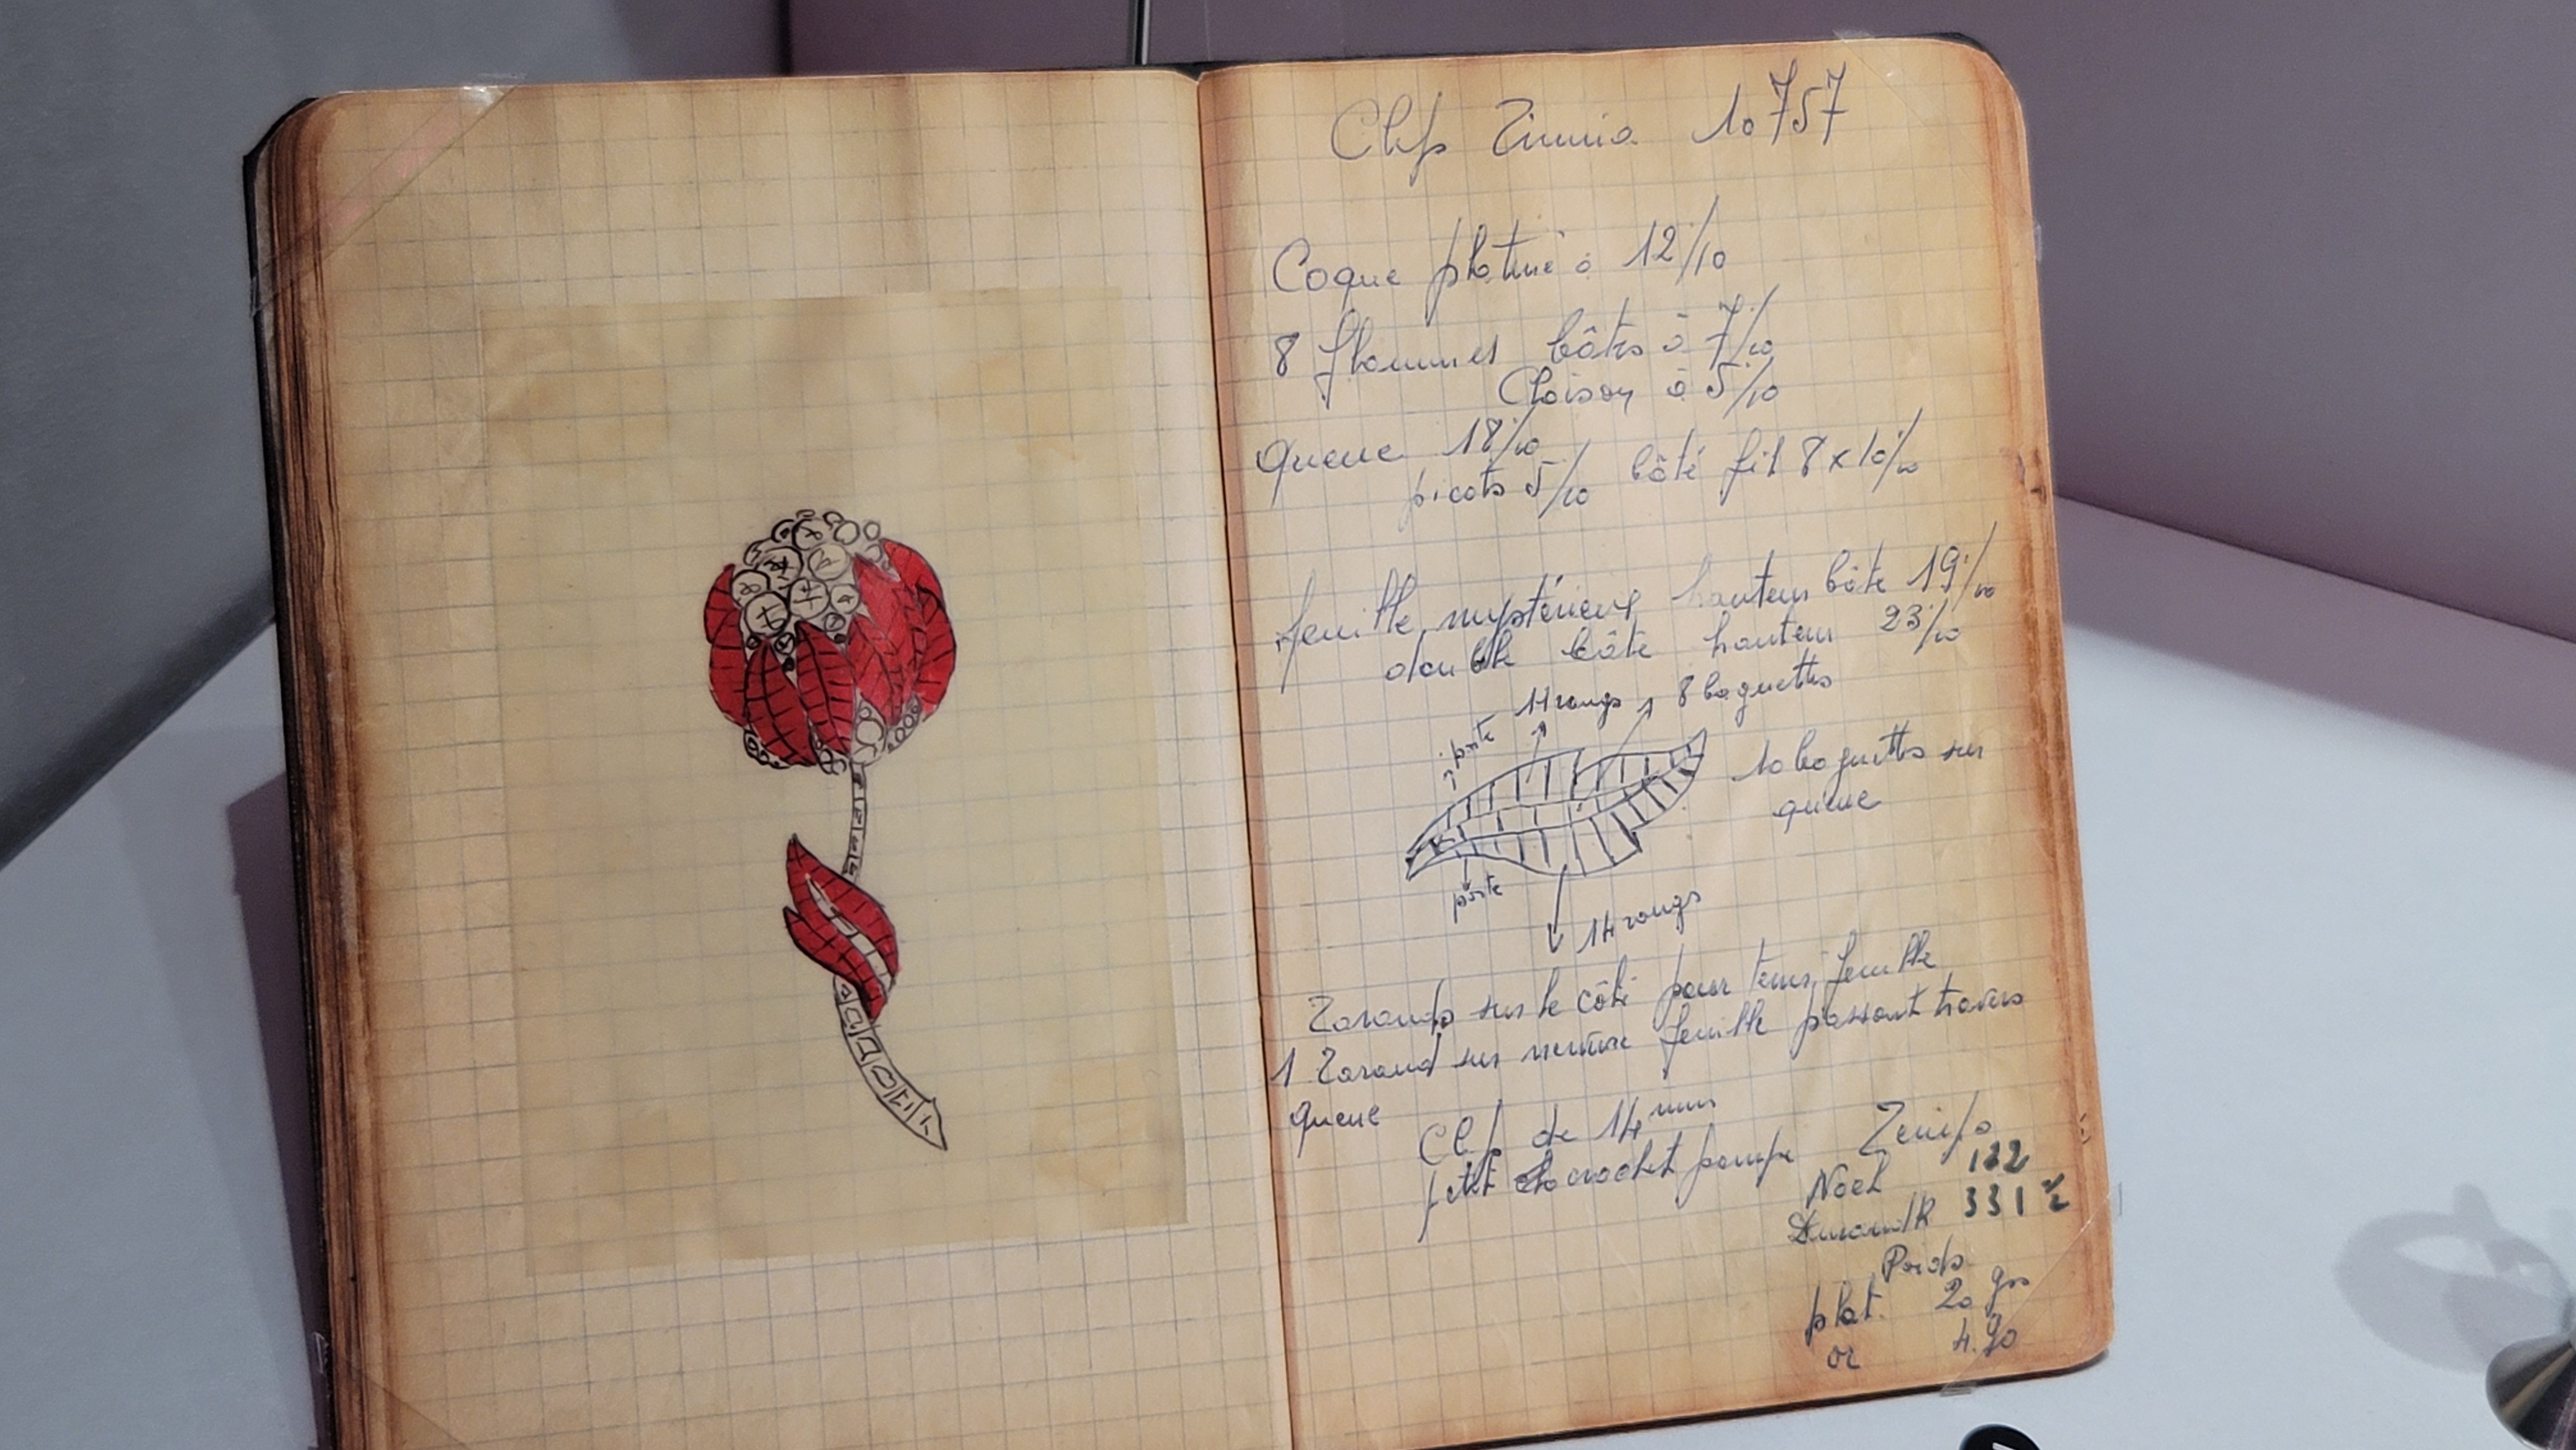 Clip Zinnia 10757
Coque platine à 12/10
8 flammes bâtes à 7/10
Cloison à 5/10
queue 18/10
picots 5/10 bâté fil 8 x 10/10
feuille mystérieux hauteur bâte 19/10
double bâte hauteur 23/10
porte 14 rangs 8 baguettes
10 baguettes sur
queue
porte
14 rangs
sur le côté pour tenir feuille
1 sur nervure feuille passant travers
queue
Clip de 14 mm
petit crochet pompe
Noel 122
331 1/2
Poids
plat. 20 grs
or 4.90